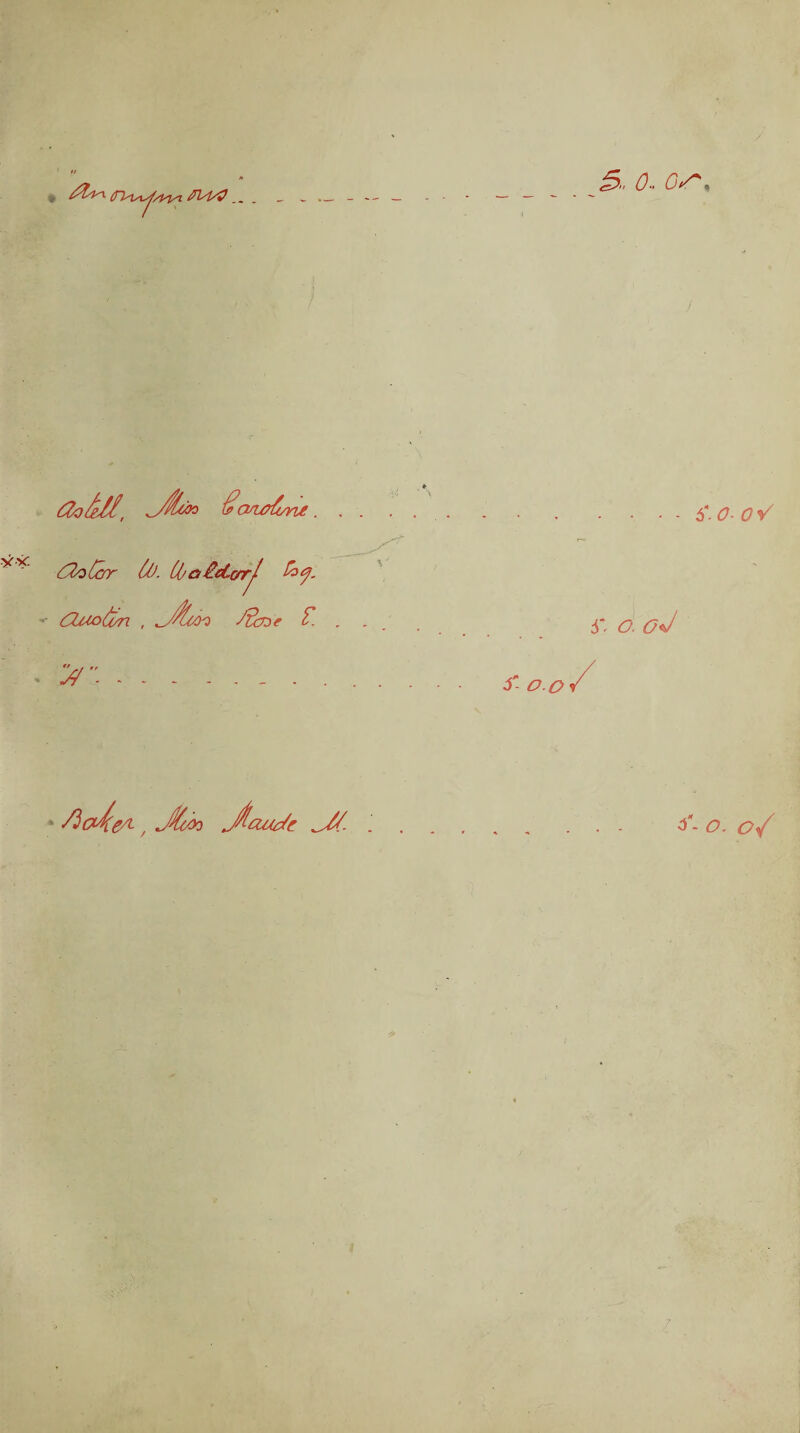 "Anonymous" . . . . . . . . . . 5. 0. 0✓
Astell, Miss Caroline . . . . . . . . . . 5. 0. 0✓
** Astor W. Waldorf Esq.
Austin, Miss Rose E. . . . . . . . . . . 5. 0. 0✓
"A" . . . . . . . . . . 5. 0. 0✓
Baker, Miss Maude M. . . . . . . . . . . 5. 0. 0✓